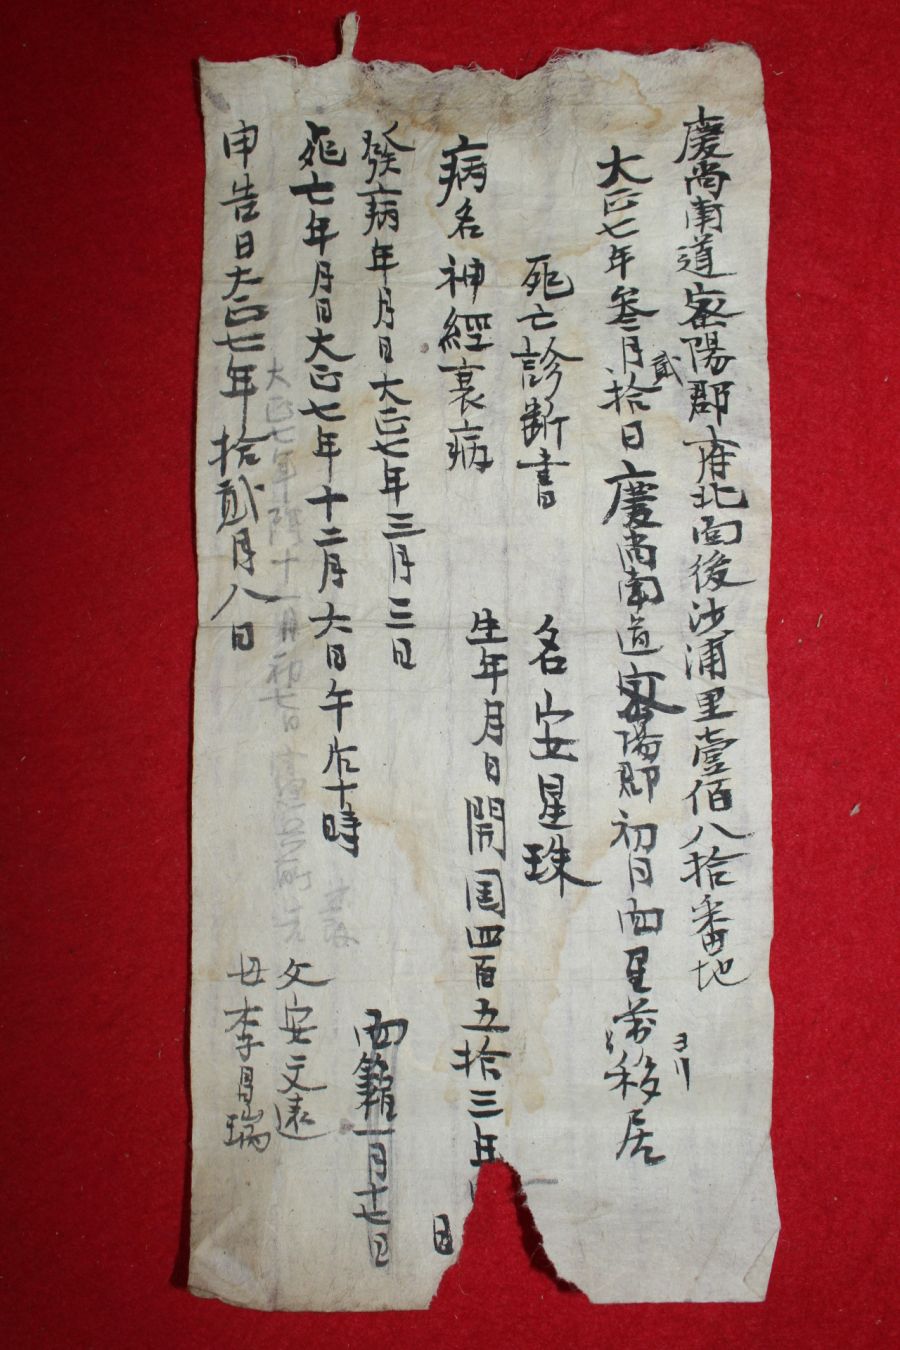 慶尚南道密陽郡府北面後沙浦里壹佰八拾番地
大正七年叄月貳拾日慶尚南道密陽郡初同面里 移居
ヨリ
死亡診断書 名安星珠
病名神經衰病 生年月日開国四百五拾三年 日
發病年月日大正七年三月三日 西籍一月十七日
死亡年月日大正七年十二月六日午后十時
父安文遠
申告日大正七年拾貳月八日
母李月瑞